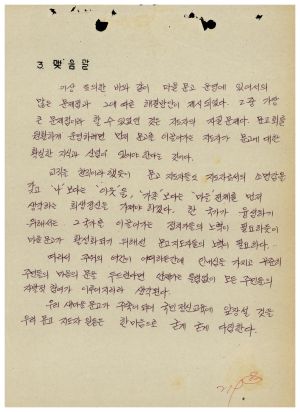 3. 맺음말
이상 논의한 바와 같이 마을문고 운영에 있어서의
많은 문제점과 그에 따른 해결방안이 제시되었다. 그중 가장
큰 문제점이라 할 수 있었던 것은 지도자의 자질문제다. 문고회를
원활하게 운영하려면 먼저 문고를 이끌어가는 지도자가 문고에 대한
확실한 지식과 신념이 있어야 한다는 것이다.
문고 지도자들은 지도자로서의 소명감을
갖고 "나" 보다는 "이웃"을, "가족" 보다는 "마을" 전체를 먼저
생각하는 희생정신을 가져야 하겠다. 한 국가가 융성하기
위해서는 그 국가를 이끌어가는 정치가들의 노력이 필요하듯이
마을문고가 활성화되기 위해선 문고지도자들의 노력이 필요하다.
따라서 주어진 여건이 어떠하든간에 인내심을 가지고 꾸준히
주민들의 마음의 문을 두드린다면 언젠가는 틀림없이 모든 주민들의
자발적 참여가 이루어지리라 생각된다.
우리 새마을 문고가 주축이 되어 국민정신교육에 앞장설 것을
우리 문고 지도자 일동은 한마음으로 굳게 굳게 다짐한다.